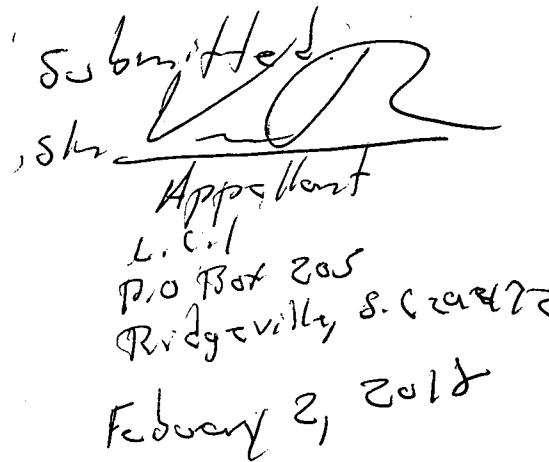 Submitted,
Appellant
L.C.I
P.O Box 205
Ridgeville, S.C 29472
Febuary 2, 2018